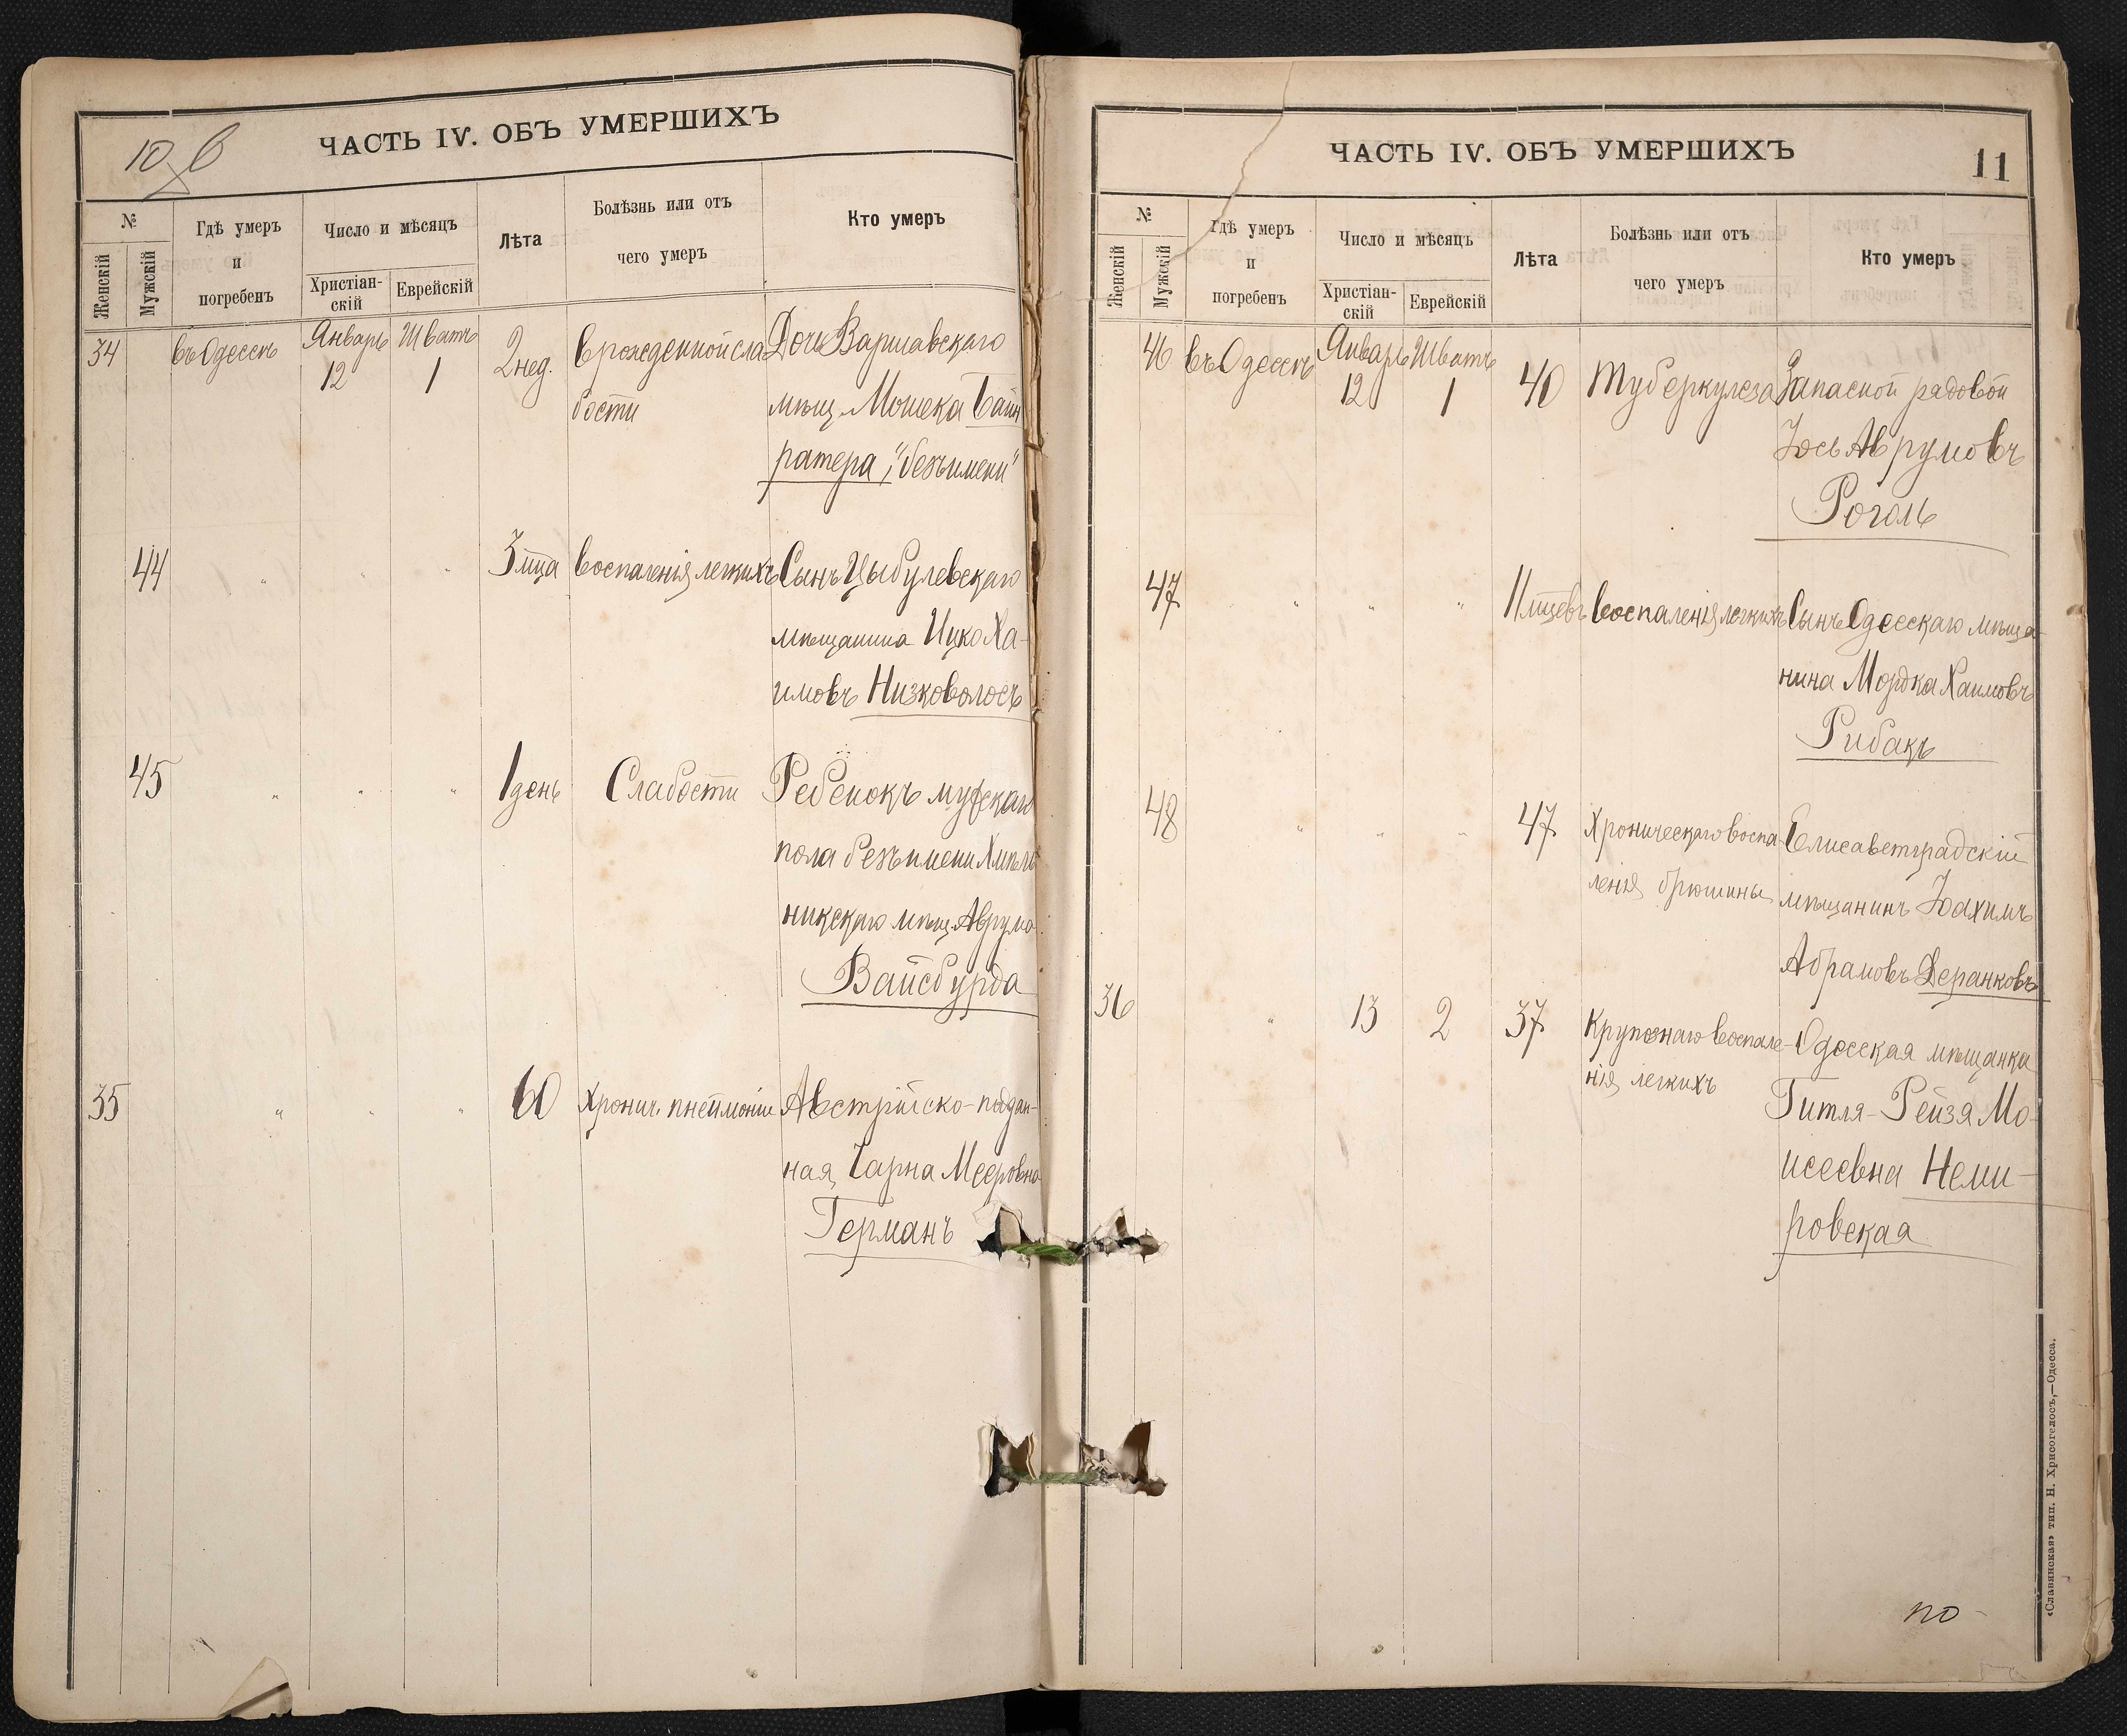 10 в
ЧАСТЬ IV. ОБЪ УМЕРШИХЪ
№
Женскій
Мужскій
Гдѣ умеръ
и
погребенъ
Число и мѣсяцъ
Христіан-
скій
Еврейскій
Лѣта
Болѣзнь или отъ
чего умеръ
Кто умеръ
34 въ Одессѣ Январь 12 Шватъ 1 2 нед. врожденной сла
бости
Дочь Варшавскаго
мѣщ. Мошека Байн
ратера, "безъ имени"
44 " " " 3 мца воспаленія легкихъ Сынъ Цыбулевскаго
мѣщанина Ицко Ха-
имовъ Низковолосъ
45 " " " 1 день Слабости Ребенокъ мужскаго
пола безъ имени Хмѣль
никскаго мѣщ. Аврума
Вайсбурда
35 " " " 60 Хронич. пнеймоніи Австрійско-поддан-
ная, Чарна Мееровна
Германъ
ЧАСТЬ IV. ОБЪ УМЕРШИХЪ
11
№
Женскій
Мужскій
Гдѣ умеръ
и
погребенъ
Число и мѣсяцъ
Христіан-
скій
Еврейскій
Лѣта
Болѣзнь или отъ
чего умеръ
Кто умеръ
46 въ Одессѣ Январь 12 Шватъ 1 40 Туберкулеза Запасной рядовой
Іось Аврумовъ
Роголь
47 " " " 11 мцевъ воспаленія легкихъ Сынъ Одесскаго мѣща-
нина Мордка Хаимовъ
Рибакъ
48 " " " 47 Хроническаго воспа
ленія брюшины
Елисаветградскій
мѣщанинъ Іоахимъ
Абрамовъ Деранковъ
36 " 13 2 37 Крупознаго воспале-
нія легкихъ
Одесская мѣщанка
Гитля-Рейзя Мо-
исеевна Неми-
ровская
по-
«Славянская» тип. Н. Хрисогелосъ,—Одесса.